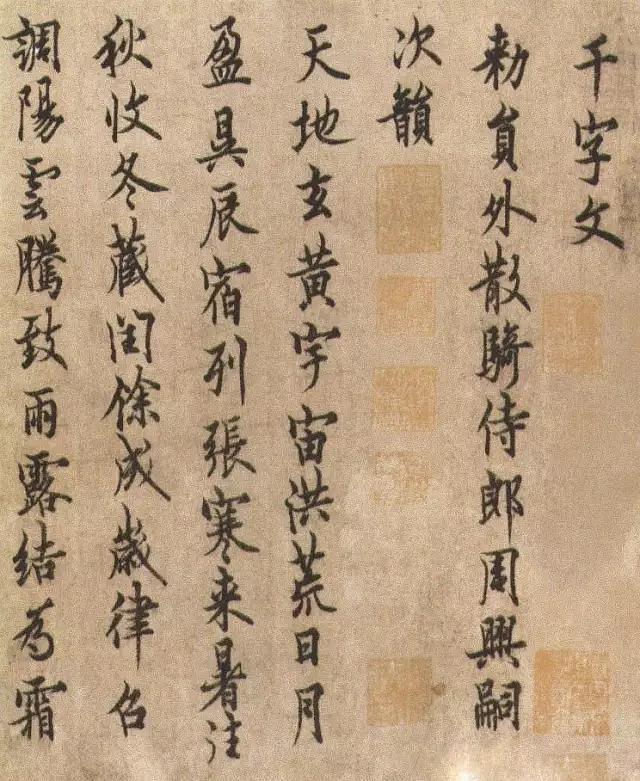 千字文
勅員外散騎侍郎周興嗣
次韻
天地玄黃宇宙洪荒日月
盈昃辰宿列張寒來暑注
秋收冬藏閏餘成歲律召
調陽雲騰致雨露結為霜